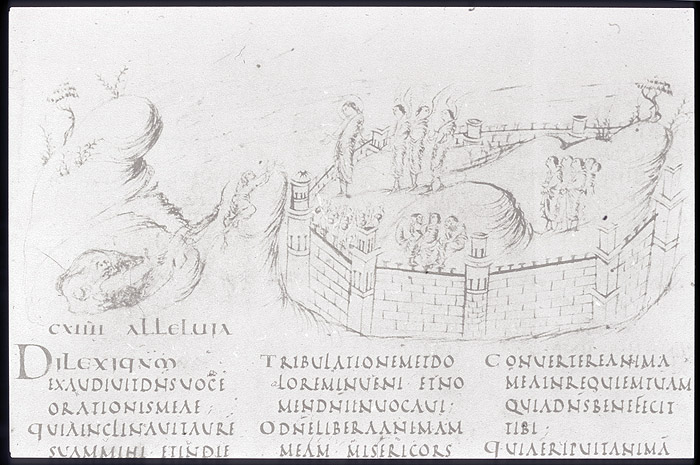 CXIIII ALLELUIA
DILEXIQNM
EXAUDIUITDNSUOCE
ORATIONISMEAE;
QUIAINCLINAUITAURE
SUAMMIHI ETINDIE
TRIBULATIONEMETDO
LOREMINUENI ETNO
MENDNIINUOCAUI;
ODNELIBERAANIMAM
MEAM MISERICORS
CONUERTEREANIMA
MEAINREQUIEMTUAM
QUIADNSBENEFECIT
TIBI;
QUIAERIPUITANIMA